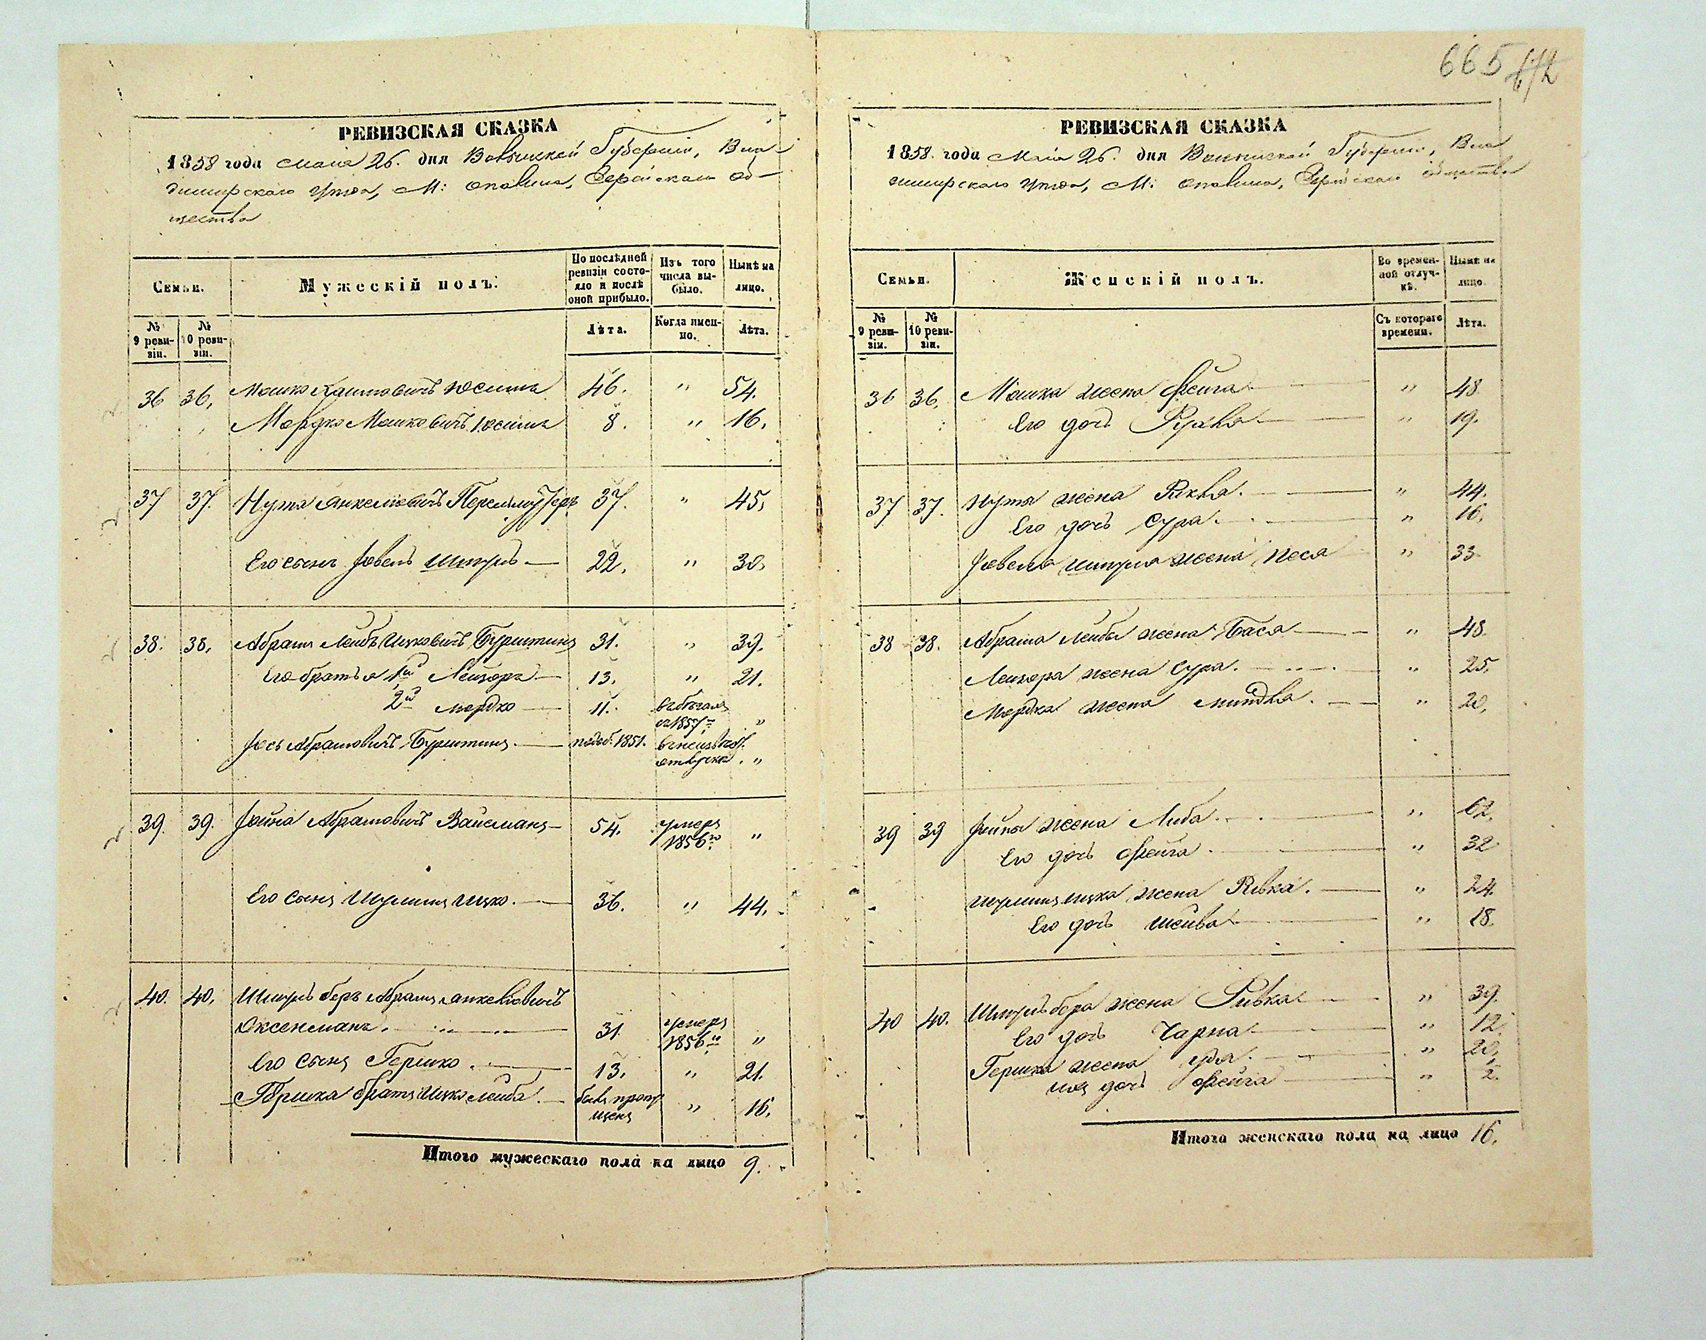 665 672
РЕВИЗСКАЯ СКАЗКА
1858 года мая 26. дня Волынской Губернии, Вла-
димирского уезда, М: Опалина, Еврейскаго об-
щества
Семьи.
Мужескій полъ.
По послѣдней ревизіи состо-
яло и послѣ
оной прибыло.
Изъ того
числа вы-
было.
Нынѣ на
лицо.
№ 9 реви-
зіи.
№ 10 реви-
зіи.
Лѣта.
Когда имен-
но.
Лѣта.
36 36. Мошко Хаимовичъ Юсима 46. " 54.
Мордко Мошковичъ Юсима 8. " 16.
37 37. Нута Янкелевичъ Перельмутеръ 37. " 45.
Его сынъ Іовель Шмуль 22. " 30.
38. 38. Абрамъ Лейбъ Ицковичъ Бурштинъ 31. " 39.
Его братья 1й Лейзоръ 13. " 21.
2й Мордко 11. въ бѣгахъ
съ 1857г "
Іось Абрамовичъ Бурштинъ подоб. 1851.
39. 39. Іойна Абрамовичъ Вайсманъ 54. умеръ
1856го "
Его сынъ Шулимъ Ицко 36. " 44.
40. 40. Шмуль Беръ Абрамъ Янкелевичъ
Оксенманъ. 31 умеръ
1856го "
Его сынъ Гершко. 13. " 21.
Гершка братъ Ицко Лейба. былъ пропу
щенъ " 16.
Итого мужескаго пола на лицо 9.
РЕВИЗСКАЯ СКАЗКА
1858. года мая 26. дня Волынской Губернии, Вла
димирскаго уезда, М: Опалина, Еврейскаго общества
Семьи.
Женскій полъ.
Во времен-
ной отлуч-
кѣ.
Нынѣ на
лицо.
№ 9 реви-
зіи.
№ 10 реви-
зіи.
Съ котораго
времени.
Лѣта.
36 36. Мошка жена Фейга " 48
Его дочь Рухля " 19.
37 37. Нута жена Ривка. " 44.
Его дочь Сура. " 16.
Іовеля Шмуля жена Песя " 33
38 38. Абрама Лейбы жена Бася " 48.
Лейзора жена Сура. " 25.
Мордка жена Миндля. " 20.
39 39 Іойны жена Либа. " 62.
Его дочь Фейга. " 32
Шулима Ицка жена Ривка. " 24.
Его дочь Шейва " 18.
40 40. Шмуль Бера жена Ривка " 39.
Его дочь Чарна " 12.
Гершка жена Удя. " 20.
ихъ дочь Фейга " 2.
Итого женскаго пола на лицо 16.